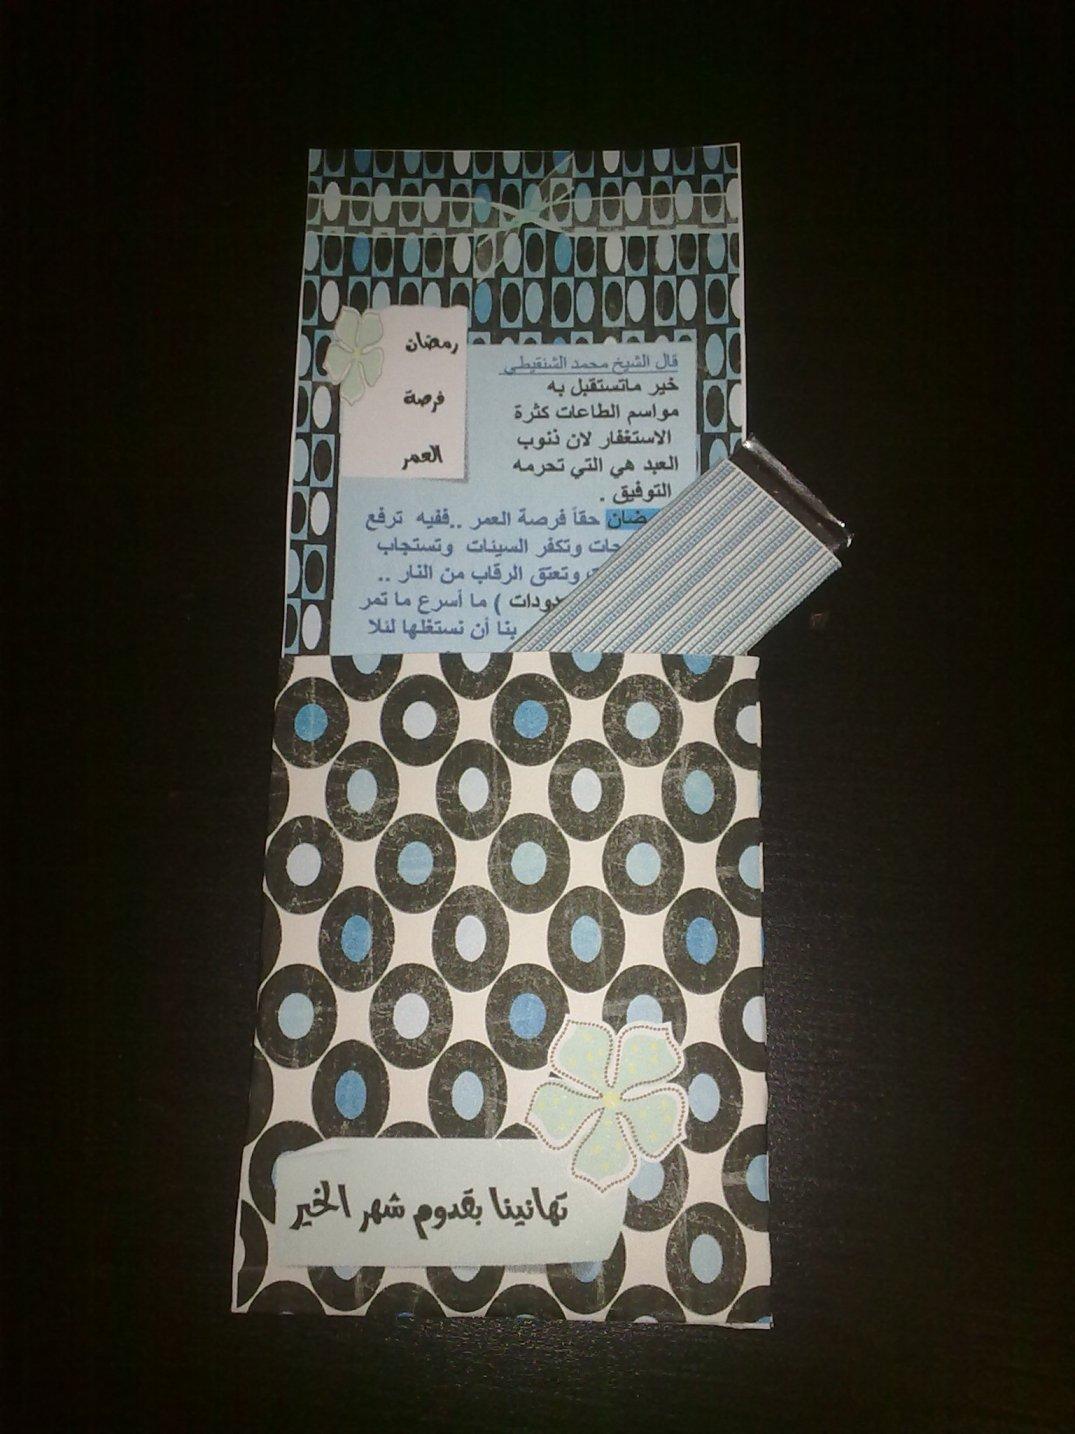 رمضان
فرصة
العمر
قال الشيخ محمد الشنقيطي
خير ماتستقبل به
مواسم الطاعات كثرة
الاستغفار لان ذنوب
العبد هي التي تحرمه
التوفيق .
حقاً فرصة العمر ..ففيه ترفع
وتكفر السيئات وتستجاب
وتعتق الرقاب من النار ..
) ما أسرع ما تمر
بنا أن نستغلها لئلا
تهانينا بقدوم شهر الخير